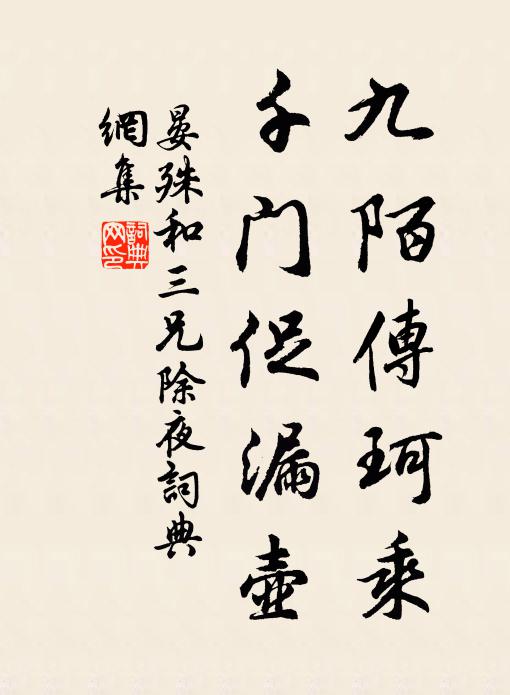 九陌傳珂乘
千門促漏壺
晏殊和三兄除夜詞典
網集
詞典網印